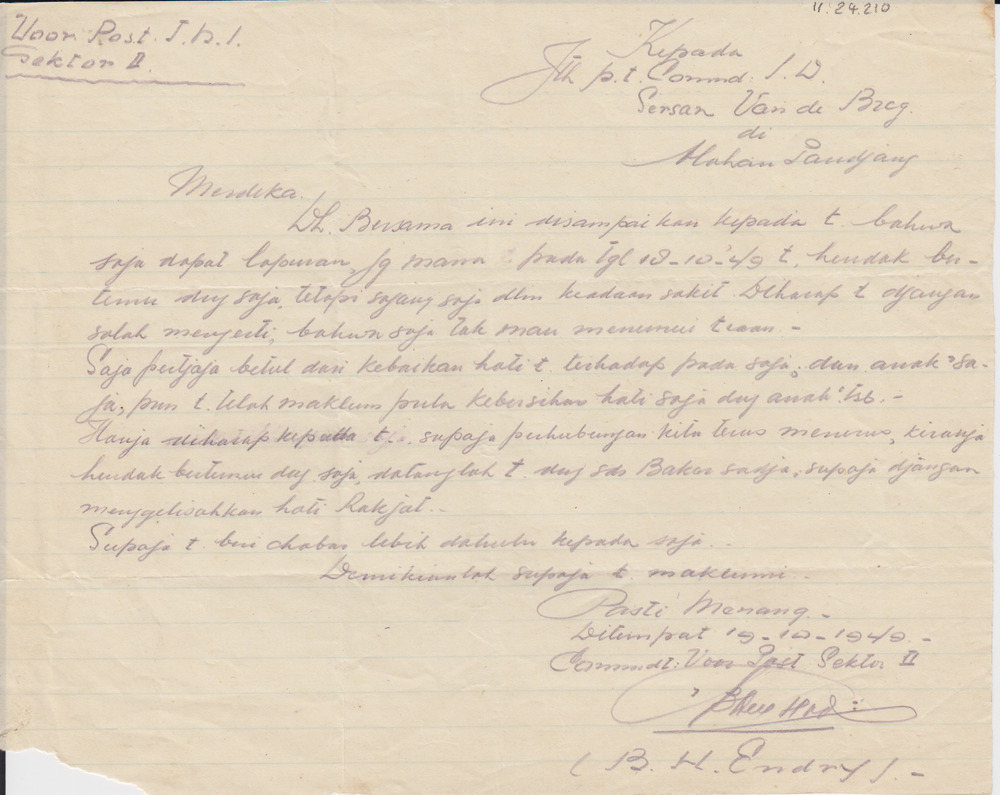 11.24.210
Voor Post T.N.I.
Sektor II
Kepada
Jth p.t. Commd: I.D.
Sersan Van de Breg.
di
Alahan Pandjang
Merdeka.
Dh. Bersama ini disampaikan kepada t. bahwa
saja dapat lapuran, jg mana t pada tgl 18-10-'49 t. hendak ber-
temu dng saja, tetapi sajang saja dlm keadaan sakit. Diharap t djangan
salah mengerti, bahwa saja tak mau menemui tuan. -
Saja pertjaja betul dari kebaikan hati t. terhadap pada saja, dan anak² sa-
ja, pun t. telah maklum pula kebersihan hati saja dng anak² tsb. -
Hanja diharap kepada t. supaja perhubungan kita terus menerus, kiranja
hendak bertemu dng saja, datanglah t. dng sdr Bakar sadja, supaja djangan
menggelisahkan hati Rakjat. -
Supaja t. beri chabar lebih dahulu kepada saja. -
Demikianlah supaja t. maklumi. -
Pasti Menang. -
Ditempat 19-10-1949. -
Commdt: Voor Post Sektor II
( B. H. Endry ). -